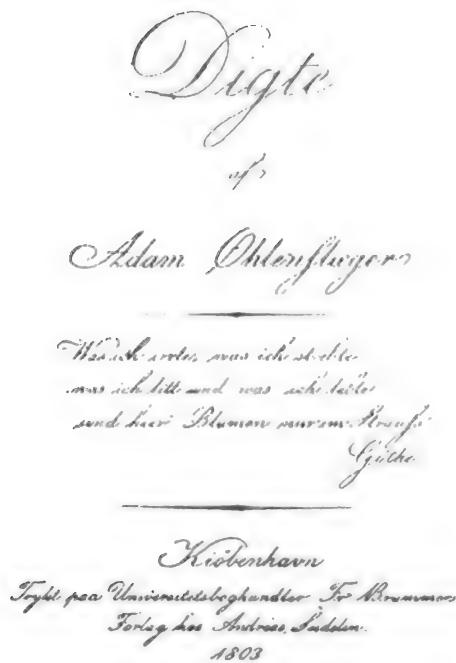 Digte
af
Adam Øhlenslæger
was ich litt und was ich lebte
sind hier Blumen nur im Strauß
Göthe
Kiöbenhavn
Trykt paa Universitetsboghandler Fr Brummers
Forlag hos Andreas Seidelin.
1803